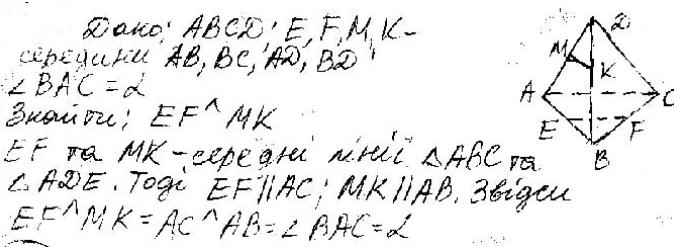 Дано: ABCD; E, F, M, K-
середини AB, BC, AD, BD
∠BAC = α
Знайти: EF^MK
EF та MK – середні лінії △ABC та
△ADE. Тоді EF||AC; MK||AB. Звідси
EF^MK = AC^AB = ∠BAC = α
D
M
K
A
C
E
F
B